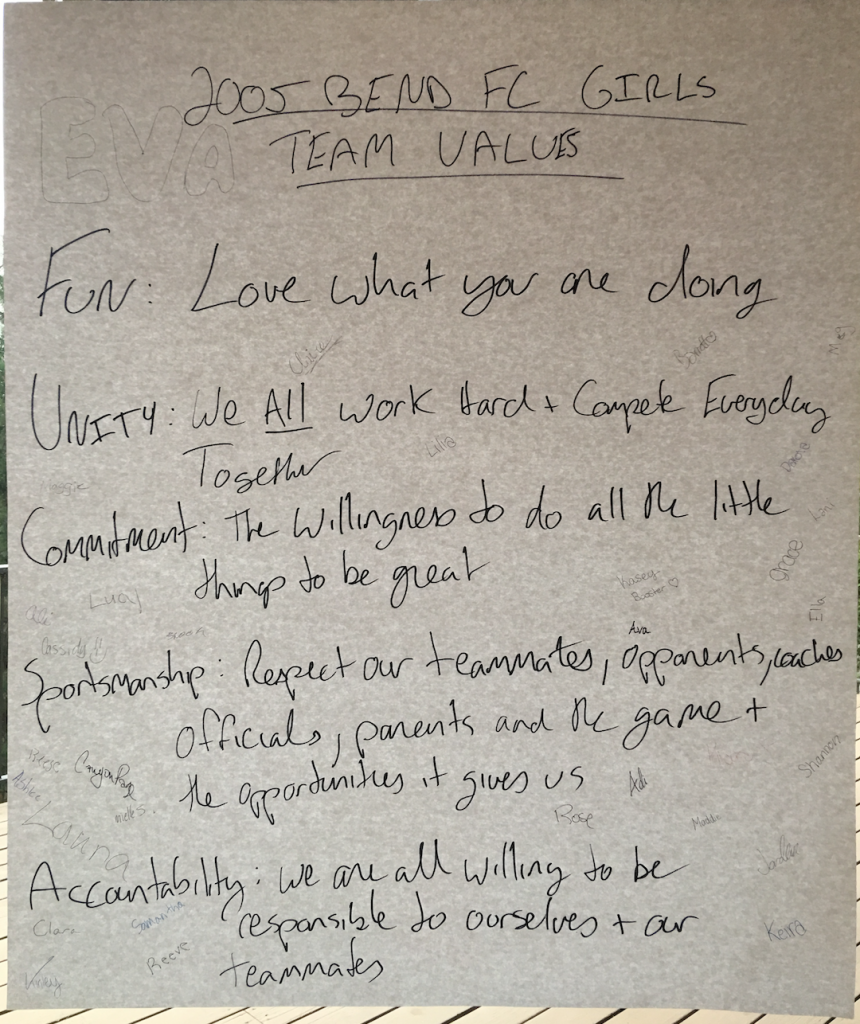 2005 BEND FC GIRLS
EVA
TEAM VALUES
FUN: Love what you are doing
UNITY: We All work Hard + Compete Everyday
Together
Lilia
Commitment: The Willingness to do all the little
things to be great
Grace
Kasey
Lucy
Ella
Cassidy
Ava
Sportsmanship: Respect our teammates, opponents, coaches
officials, parents and the game +
the opportunities it gives us
Reese
Shannon
Addi
Rose
Maddie
Laura
Jordan
Accountability: we are all willing to be
responsible to ourselves + our
teammates
Clara
Samantha
Keira
Reeve